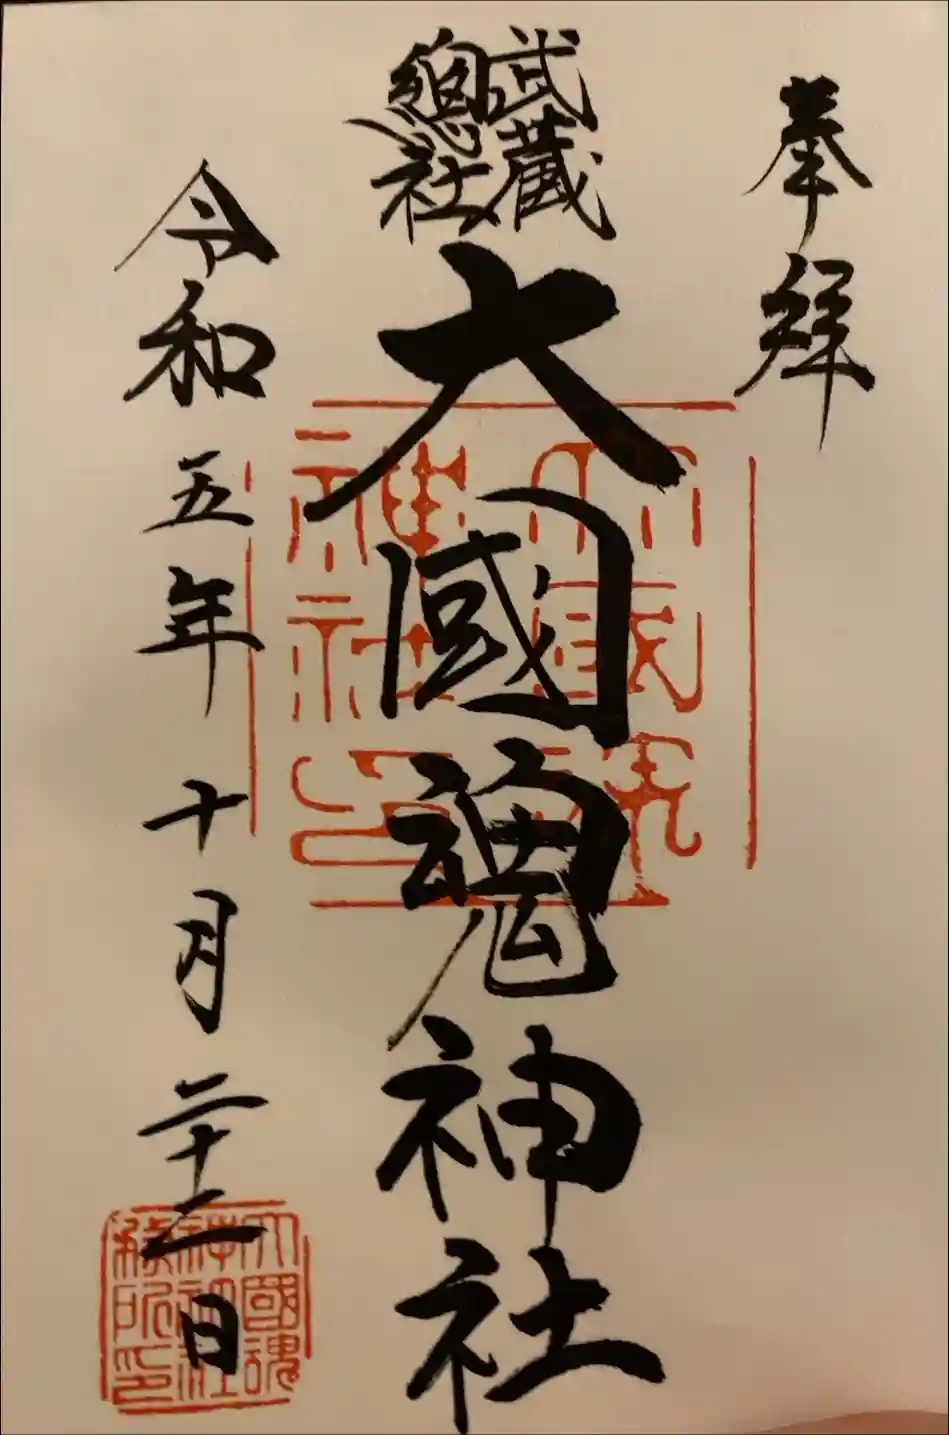 奉拝
武蔵
總社
大國魂神社
令和五年十月二十二日
大國魂
神社
務所印